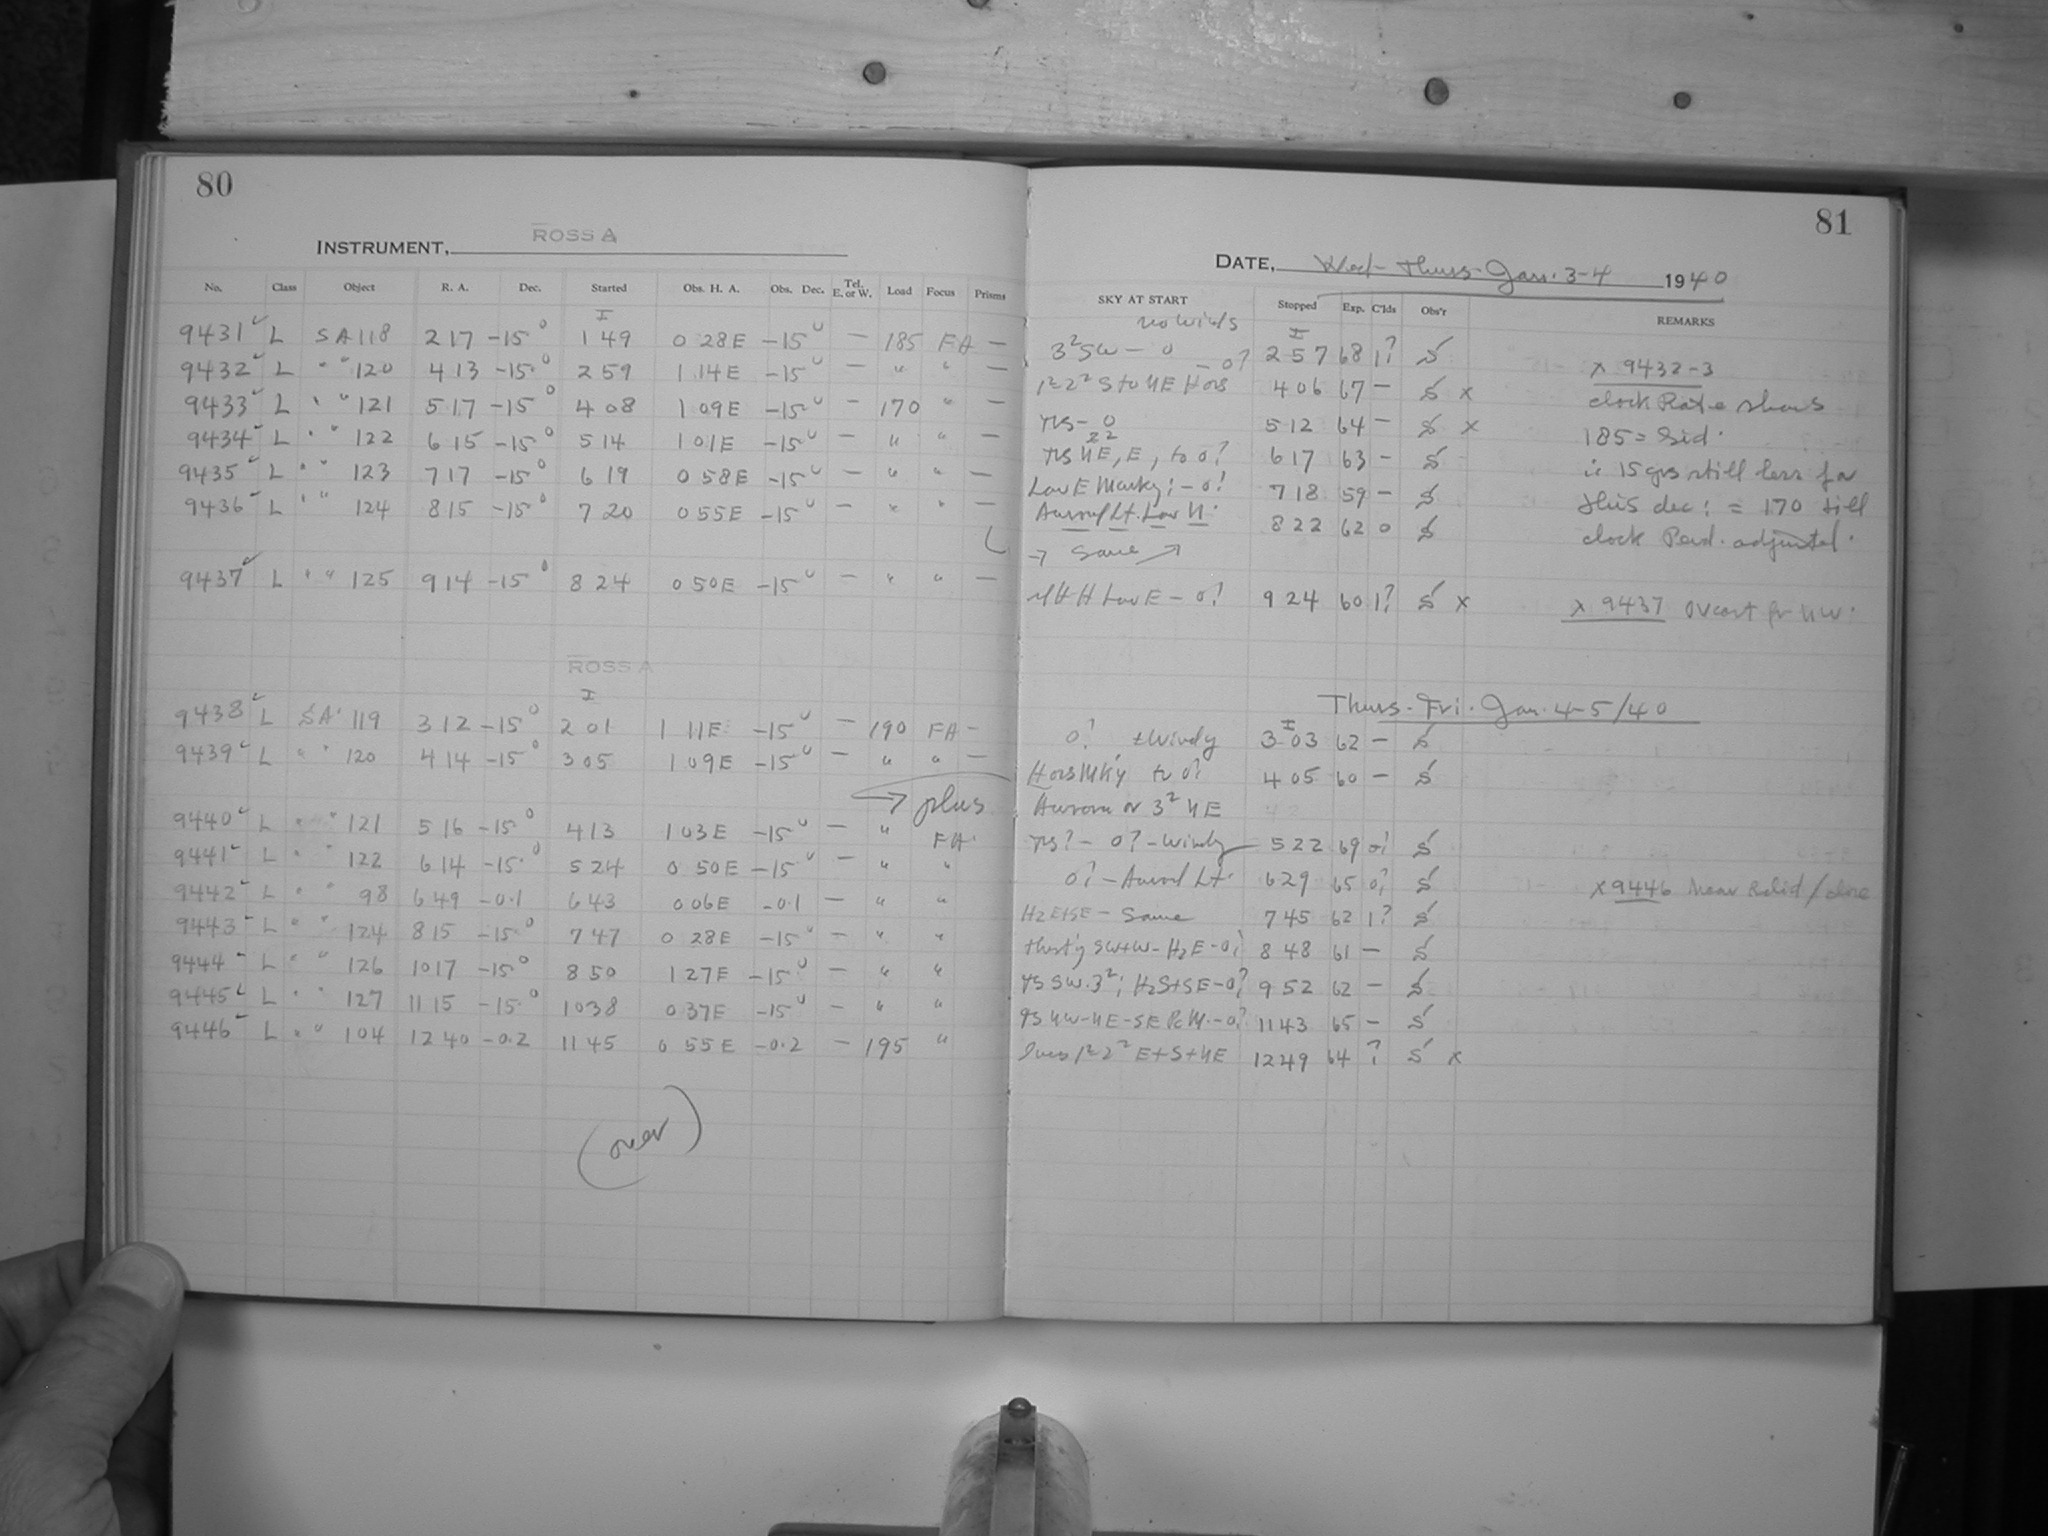 80
INSTRUMENT, ROSS A
No. Class Object R. A. Dec. Started Obs. H. A. Obs. Dec. Tel. E. or W. Load Focus Prisms
9431 L SA 118 2 17 -15° 1 49 0 28E -15° — 185 FA —
9432 L " " 120 4 13 -15° 2 59 1 14E -15° — " " —
9433 L " " 121 5 17 -15° 4 08 1 09E -15° — 170 " —
9434 L " " 122 6 15 -15° 5 14 1 01E -15° — " " —
9435 L " " 123 7 17 -15° 6 19 0 58E -15° — " " —
9436 L " " 124 8 15 -15° 7 20 0 55E -15° — " " —
9437 L " " 125 9 14 -15° 8 24 0 50E -15° — " " —
ROSS A
9438 L SA 119 3 12 -15° 2 01 1 11E -15° — 190 FA -
9439 L " " 120 4 14 -15° 3 05 1 09E -15° — " " —
plus
9440 L " " 121 5 16 -15° 4 13 1 03E -15° — " FA
9441 L " " 122 6 14 -15° 5 24 0 50E -15° — " "
9442 L " " 98 6 49 -0.1 6 43 0 06E -0.1 — " "
9443 L " " 124 8 15 -15° 7 47 0 28E -15° — " "
9444 L " " 126 10 17 -15° 8 50 1 27E -15° — " "
9445 L " " 127 11 15 -15° 10 38 0 37E -15° — " "
9446 L " " 104 12 40 -0.2 11 45 0 55E -0.2 — 195 "
(over)
81
DATE, Wed-Thurs-Jan. 3-4 1940
SKY AT START Stopped Exp. C'lds Obs'r REMARKS
no winds
3²SW - 0 2 57 68 1? S
1²2² S to NE Hors - 0? 4 06 67 — S x
- 0 5 12 64 — S x
NE, E, to 0? 6 17 63 — S
Low E Marky: - 0? 7 18 59 — S
Auroral Lt. Low N. 8 22 62 0 S
→ Same
Low E - 0? 9 24 60 1? S x
x 9432-3
clock Rate shows
185 = Sid.
is 15 grs still less for
this dec: = 170 till
clock Pend. adjusted.
x 9437 Ovcast fr NW.
Thurs. Fri. Jan. 4-5/40
0? + Windy 3 03 62 — S
Hors Mky to 0? 4 05 60 — S
Aurora or 3² NE
- 0? - Windy 5 22 69 0? S
0? - Auroral Lt. 6 29 65 0? S
H2E+SE - Same 7 45 62 1? S
SW+W - H2E - 0? 8 48 61 — S
SW. 3²; H2S+SE - 0? 9 52 62 — S
NW-NE-SE - 0? 11 43 65 — S
1²2² E+S+NE 12 49 64 ? S x
x 9446 Near Solid /